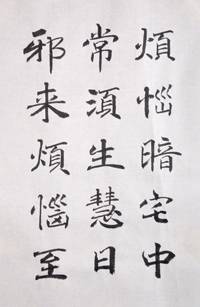 煩惱暗宅中
常須生慧日
邪来煩惱至